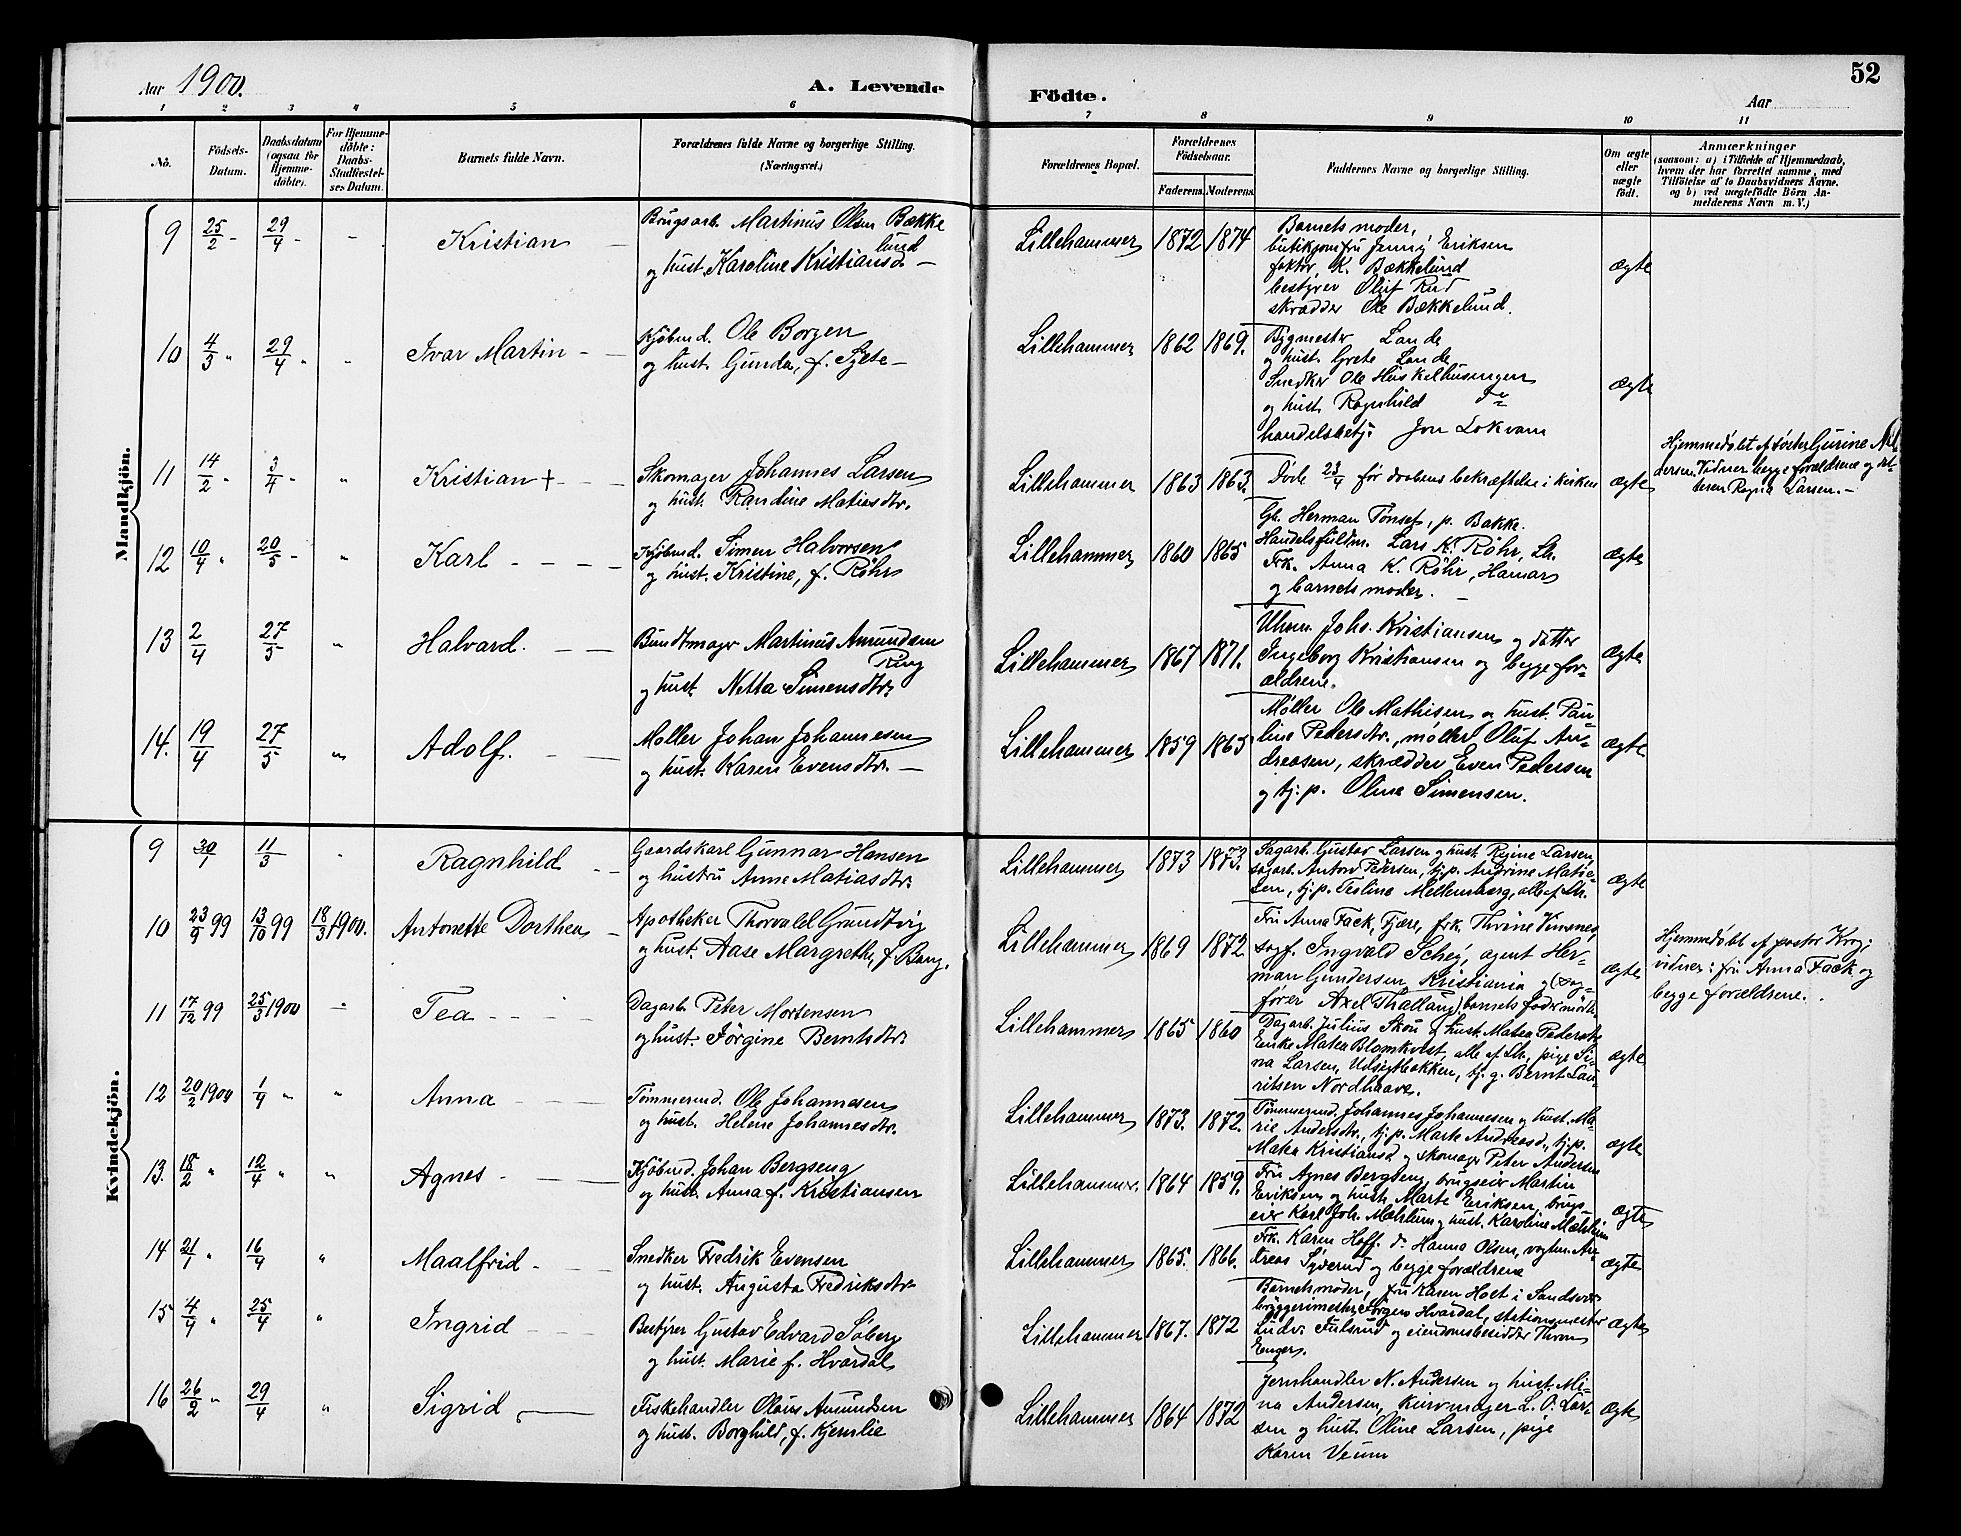 Aar 1900.
A. Levende
Födte.
Aar
52
1 2 3 4 5 6 7 8 9 10 11
No.
Födsels-
Datum.
Daabsdatum
(ogsaa for
Hjemme-
döbte).
For Hjemme-
döbte:
Daabs-
Stadfæstel-
ses Datum.
Barnets fulde Navn.
Forældrenes fulde Navne og borgerlige Stilling.
(Næringsvei.)
Forældrenes Bopæl.
Forældrenes
Födselsaar.
Faderens. Moderens.
Faddernes Navne og borgerlige Stilling.
Om ægte
eller
uægte
födt.
Anmærkninger
(saasom: a) i Tilfælde af Hjemmedaab,
hvem der har forrettet samme, med
Tilföielse af to Daabsvidners Navne.
og b) ved uægtefödte Börn An-
melderens Navn m. V.)
Mandkjön.
9 25/2 - 29/4 - - Kristian
Brugsarb. Martinus Olsen Bække
lund
og hust. Karoline Kristiansd. -
Lillehammer 1872 1874
Barnets moder,
butikjomfru Jenny Eriksen
faktor K. Bækkelund
bestyrer Oluf Rud
skrædder Ole Bækkelund.
ægte
10 4/3 " 29/4 " " Ivar Martin -
Kjöbmd. Ole Borgen
og hust. Gunda, f. Sylte -
Lillehammer 1862 1869.
Bygmester Lande
og hust. Grete Lande
Snedker Ole Huskelhusingen
og hust. Ragnhild do
handelsbetj. Jon Lokvam
ægte
11 14/2 " 3/4 " " Kristian +
Skomager Johannes Larsen
og hust. Randine Matiasdtr.
Lillehammer 1863 1863.
Døde 23/4 før daabens bekræftelse i kirken
ægte
Hjemmedøbt af søster Gurine
dersen. Vidner begge forældrene og
teren Ragna Larsen. -
12 10/4 " 20/5 - " Karl
Kjöbmd. Simen Halvorsen
og hust. Kristine, f. Röhr
Lillehammer 1860 1865
Gb. Herman Tönset, p. Bakke.
Handelsfuldm. Lars K. Röhr, Lh.
Frk. Anna K. Röhr, Hamar
og barnets moder. -
ægte
13 2/4 27/5 " Halvard.
Bundtmager Martinus Amundsen
Ring
og hust. Netta Simensdtr.
Lillehammer 1867 1871.
Uhrm. Johs. Kristiansen og datter
Ingeborg Kristiansen og begge for-
ældrene.
ægte
14. 19/4 27/5 " Adolf.
Møller Johan Johannesen
og hust. Karen Evensdtr. -
Lillehammer 1859 1865
Møller Ole Mathisen og hust. Pau-
line Pedersdtr., møller Oluf An-
dreasen, skrædder Even Pedersen
og tj. p. Oline Simensen.
ægte
Kvindekjön.
9 30/1 11/3 - Ragnhild
Gaardskarl Gunnar Hansen
og hustru Anne Matiasdtr.
Lillehammer 1873 1873.
Sagarb. Gustav Larsen og hust. Regine Larsen,
sagarb. Anton Petersen, tj.p. Andrine Matie-
sen, tj.p. Teoline Mellemberg, alle af Lh.
ægte
10 23/9 99 13/10 99 18/3 1900. Antonette Dorthea
Apotheker Thorvald Grundtvig
og hust. Aase Margrethe, f. Bang.
Lillehammer 1869 1872.
Fru Anna Fack, frk. Thrine Vinsnes,
sagf. Ingvald Schøy, agent Her-
man Gundersen, Kristiania og (sag-
fører Axel Thallaug) barnets fader mødte
ægte
Hjemmedøbt af pastor Krog;
vidner: fru Anna Fack og
begge forældrene.
11 17/12 99 25/3 1900 - Tea
Dagarb. Peter Mortensen
og hust. Jörgine Berntsdtr.
Lillehammer 1865 1860
Dagarb. Julius Skou og hust. Matea Pedersdtr.
Enke Matea Blomkvist, alle af Lh., pige Si-
na Larsen, Udsigtbakken, tj. g. Bernt Lau-
ritsen Nordhaave.
ægte
12 20/2 1900 1/4 " " Anna
Tømmermd. Ole Johannesen
og hust. Helene Johannesdtr.
Lillehammer 1873. 1872.
Tømmermd. Johannes Johannesen og hust. Ma-
rie Andersdtr., tj.p. Marte Andreasd., tj.p.
Matea Kristiansd. og skomager Peter Andersen
ægte
13. 18/2 " 12/4 " " Agnes
Kjøbmd. Johan Bergseng
og hust. Anna f. Kristiansen
Lillehammer. 1864 1859.
Fru Agnes Bergseng, brugseier Martin
Eriksen og hust. Marte Eriksen, brugs-
eier Karl Joh. Mæhlum og hust. Karoline Mæhlum
ægte
14 21/1 " 16/4 " Maalfrid
Snedker Fredrik Evensen
og hust. Augusta Fredriksdtr.
Lillehammer 1865. 1866.
Frk. Karen Hoff. do Hanna Olsen, vogtm. An-
dreas Syverud og begge forældrene
ægte
15 4/4 " 25/4 " Ingrid
Bestyrer Gustav Edvard Söberg
og hust. Marie f. Hvardal
Lillehammer 1867. 1872
Barnets moder, fru Karen Host i Sandsvær
bryggerimester Jörgen Hvardal, stationsmester
Ludv. Fulsrud og eiendomsbesidder Thron
Enger.
ægte
16 26/2 " 29/4 " Sigrid
Fiskehandler Olaus Amundsen
og hust. Borghild, f. Kjemlie
Lillehammer 1864 1872
Jernhandler N. Andersen og hust. Mi-
na Andersen, kurvmager L. O. Lar-
sen og hust. Oline Larsen, pige
Karen Veum
ægte